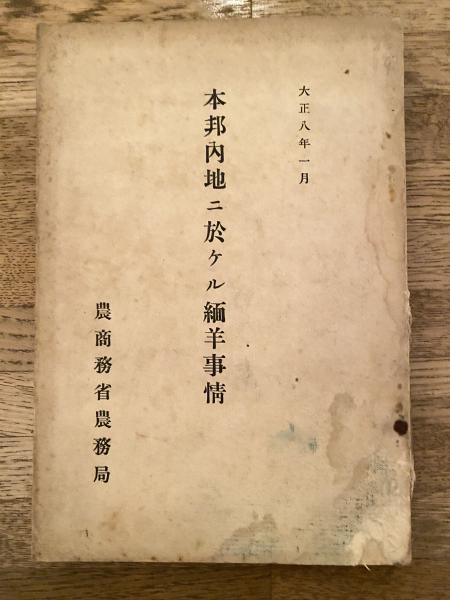 大正八年一月
本邦內地ニ於ケル緬羊事情
農商務省農務局